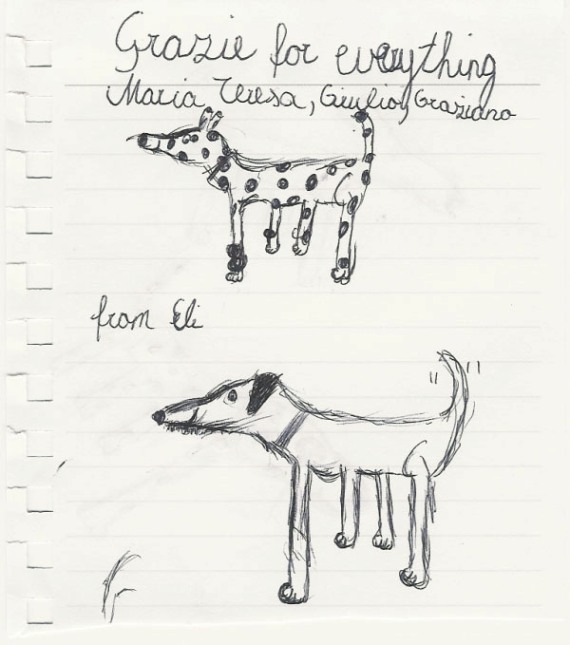 Grazie for everything
Maria Teresa, Giulio, Graziano
from Eli